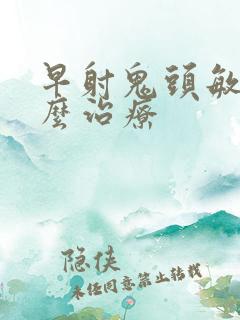 早射鬼頭敏
麼治療
隐侠
未经同意禁止转载